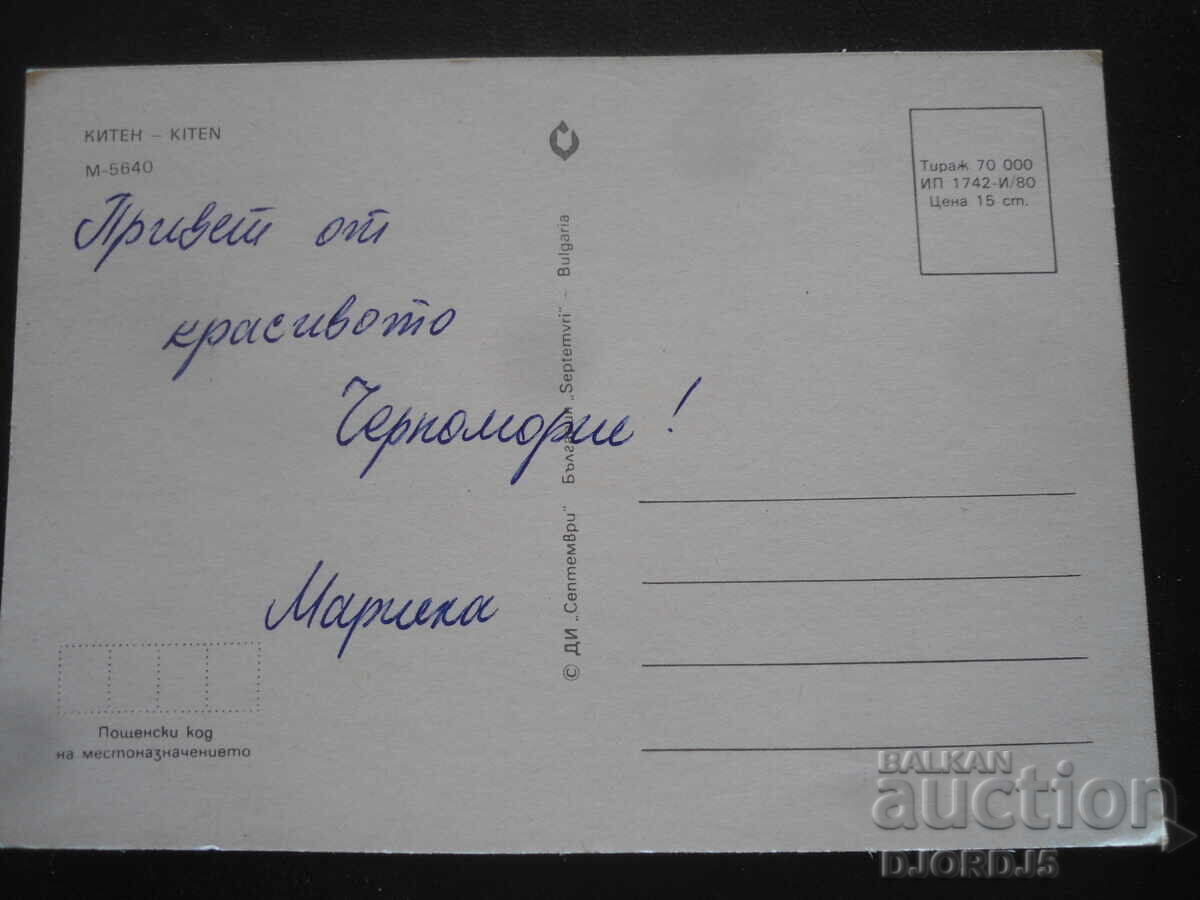 КИТЕН – KITEN
М-5640
Привет от
красивото
Черноморие!
Марика
Пощенски код
на местоназначението
© ДИ „Септември" България „Septemvri" – Bulgaria
Тираж 70 000
ИП 1742-И/80
Цена 15 ст.
BALKAN
auction
DJORDJ5